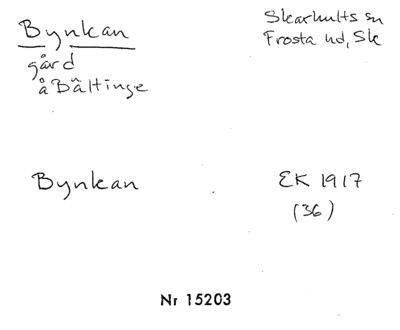 Bynkan
Skarhults sn
Frosta hd, Sk
gård
å Bältinge
Bynkan
EK 1917
(36)
Nr 15203